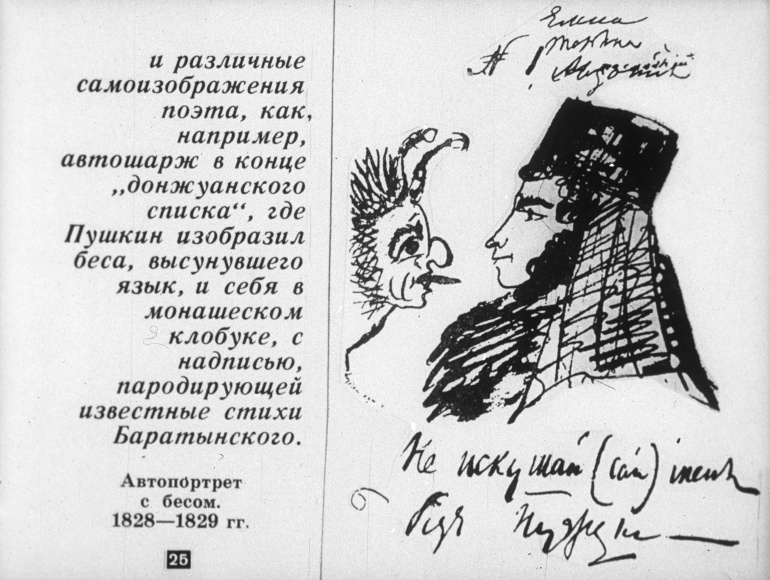 и различные
самоизображения
поэта, как,
например,
автошарж в конце
„донжуанского
списка“, где
Пушкин изобразил
беса, высунувшего
язык, и себя в
монашеском
клобуке, с
надписью,
пародирующей
известные стихи
Баратынского.
Автопортрет
с бесом.
1828—1829 гг.
25
Не искушай (сай) меня
без нужды